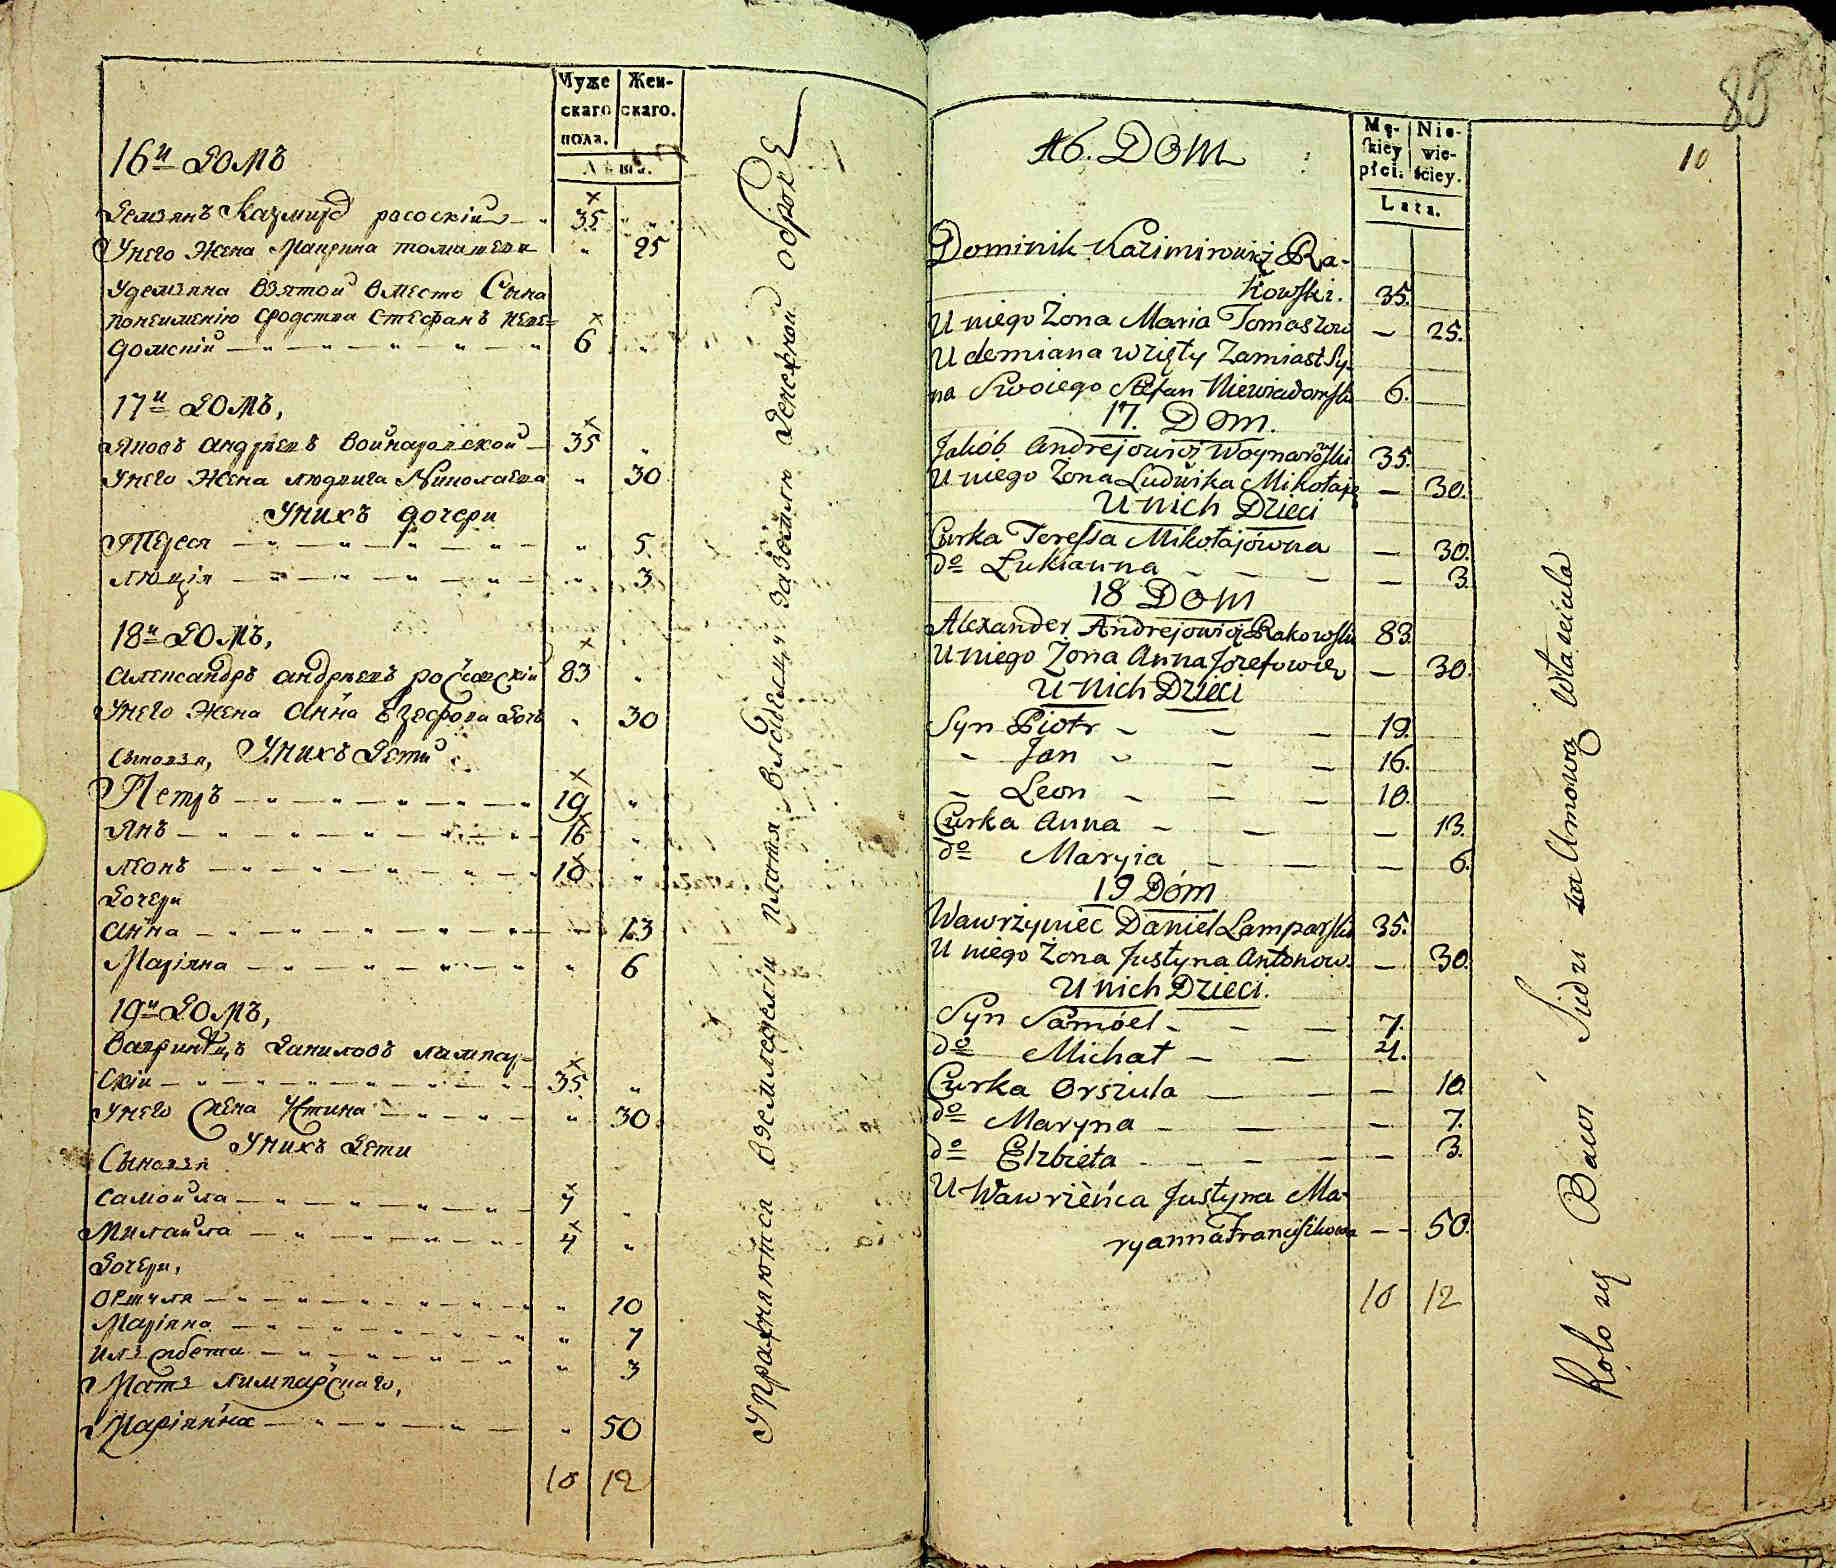 Муже
скаго
пола.
Жен-
скаго.
Лѣта.
16й Домъ
Демянъ Казмиръ 35 " "
Унего Жена Марина " 25
Удемяна взятой вместо Сына
Стефанъ
6 "
17й Домъ,
Яковъ Андреевъ 35 "
Унего Жена Людвига Николаева " 30
Унихъ дочери
Тереса " 5
Люція " 3
18й Домъ,
Александръ Андреевъ 83 "
Унего Жена Анна " 30
Сыновья, Унихъ Дети
Петръ 19 "
Янъ 16 "
Леонъ 10 "
Дочери
Анна " 13
Маріяна " 6
19й Домъ,
Даниловъ Лампар-
скій 35 "
Унего Жена Устина " 30
Унихъ Дети
Сыновья
Самойла 7 "
Михайла 4 "
Дочери,
Оршуля " 10
Маріяна " 7
Илзбета " 3
Мать Лимпарскаго,
Маріянна " 50
10 12
Упражняются вземледелии платя владельцу за землю денежной оброкъ
85
10
Mę-
skiey
płci.
Nie-
wie-
ściey.
Lata.
16. Dom
Dominik Kazimirowicz Ra-
kowski. 35.
U niego Żona Maria Tomaszow — 25.
U demiana wzięty Zamiast Sy-
na Swoiego Stefan Niewiadomski 6.
17. Dom.
Jakób Andrejowicz Woynarowski 35.
U niego Żona Ludwika Mikołaje — 30.
U nich Dzieci
Curka Teressa Mikołajówna — 30.
do Lukianna — 3.
18 Dom
Alexander Andrejowicz Rakowski 83
U niego Żona Anna Jozefowicz — 30.
U nich Dzieci
Syn Piotr — 19.
— Jan — 16.
— Leon — 10.
Curka Anna — 13.
do Maryia — 6.
19 Dóm
Wawrzyniec Daniel Lamparski 35.
U niego Żona Justyna Antonow. — 30.
U nich Dzieci.
Syn Samóel — 7.
do Michał — 4.
Curka Orszula — 10.
do Maryna — 7.
do Elzbieta — 3.
U Wawrzieńca Justyna Ma-
ryanna Franciszkowa — 50.
10 12